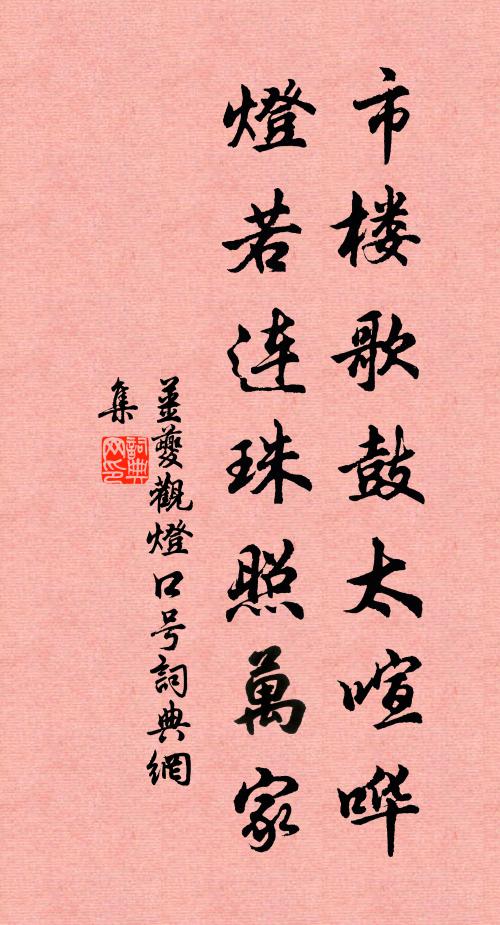 市楼歌鼓太喧哗
燈若连珠照萬家
並夔觀燈口号詞典網
集
詞典网印